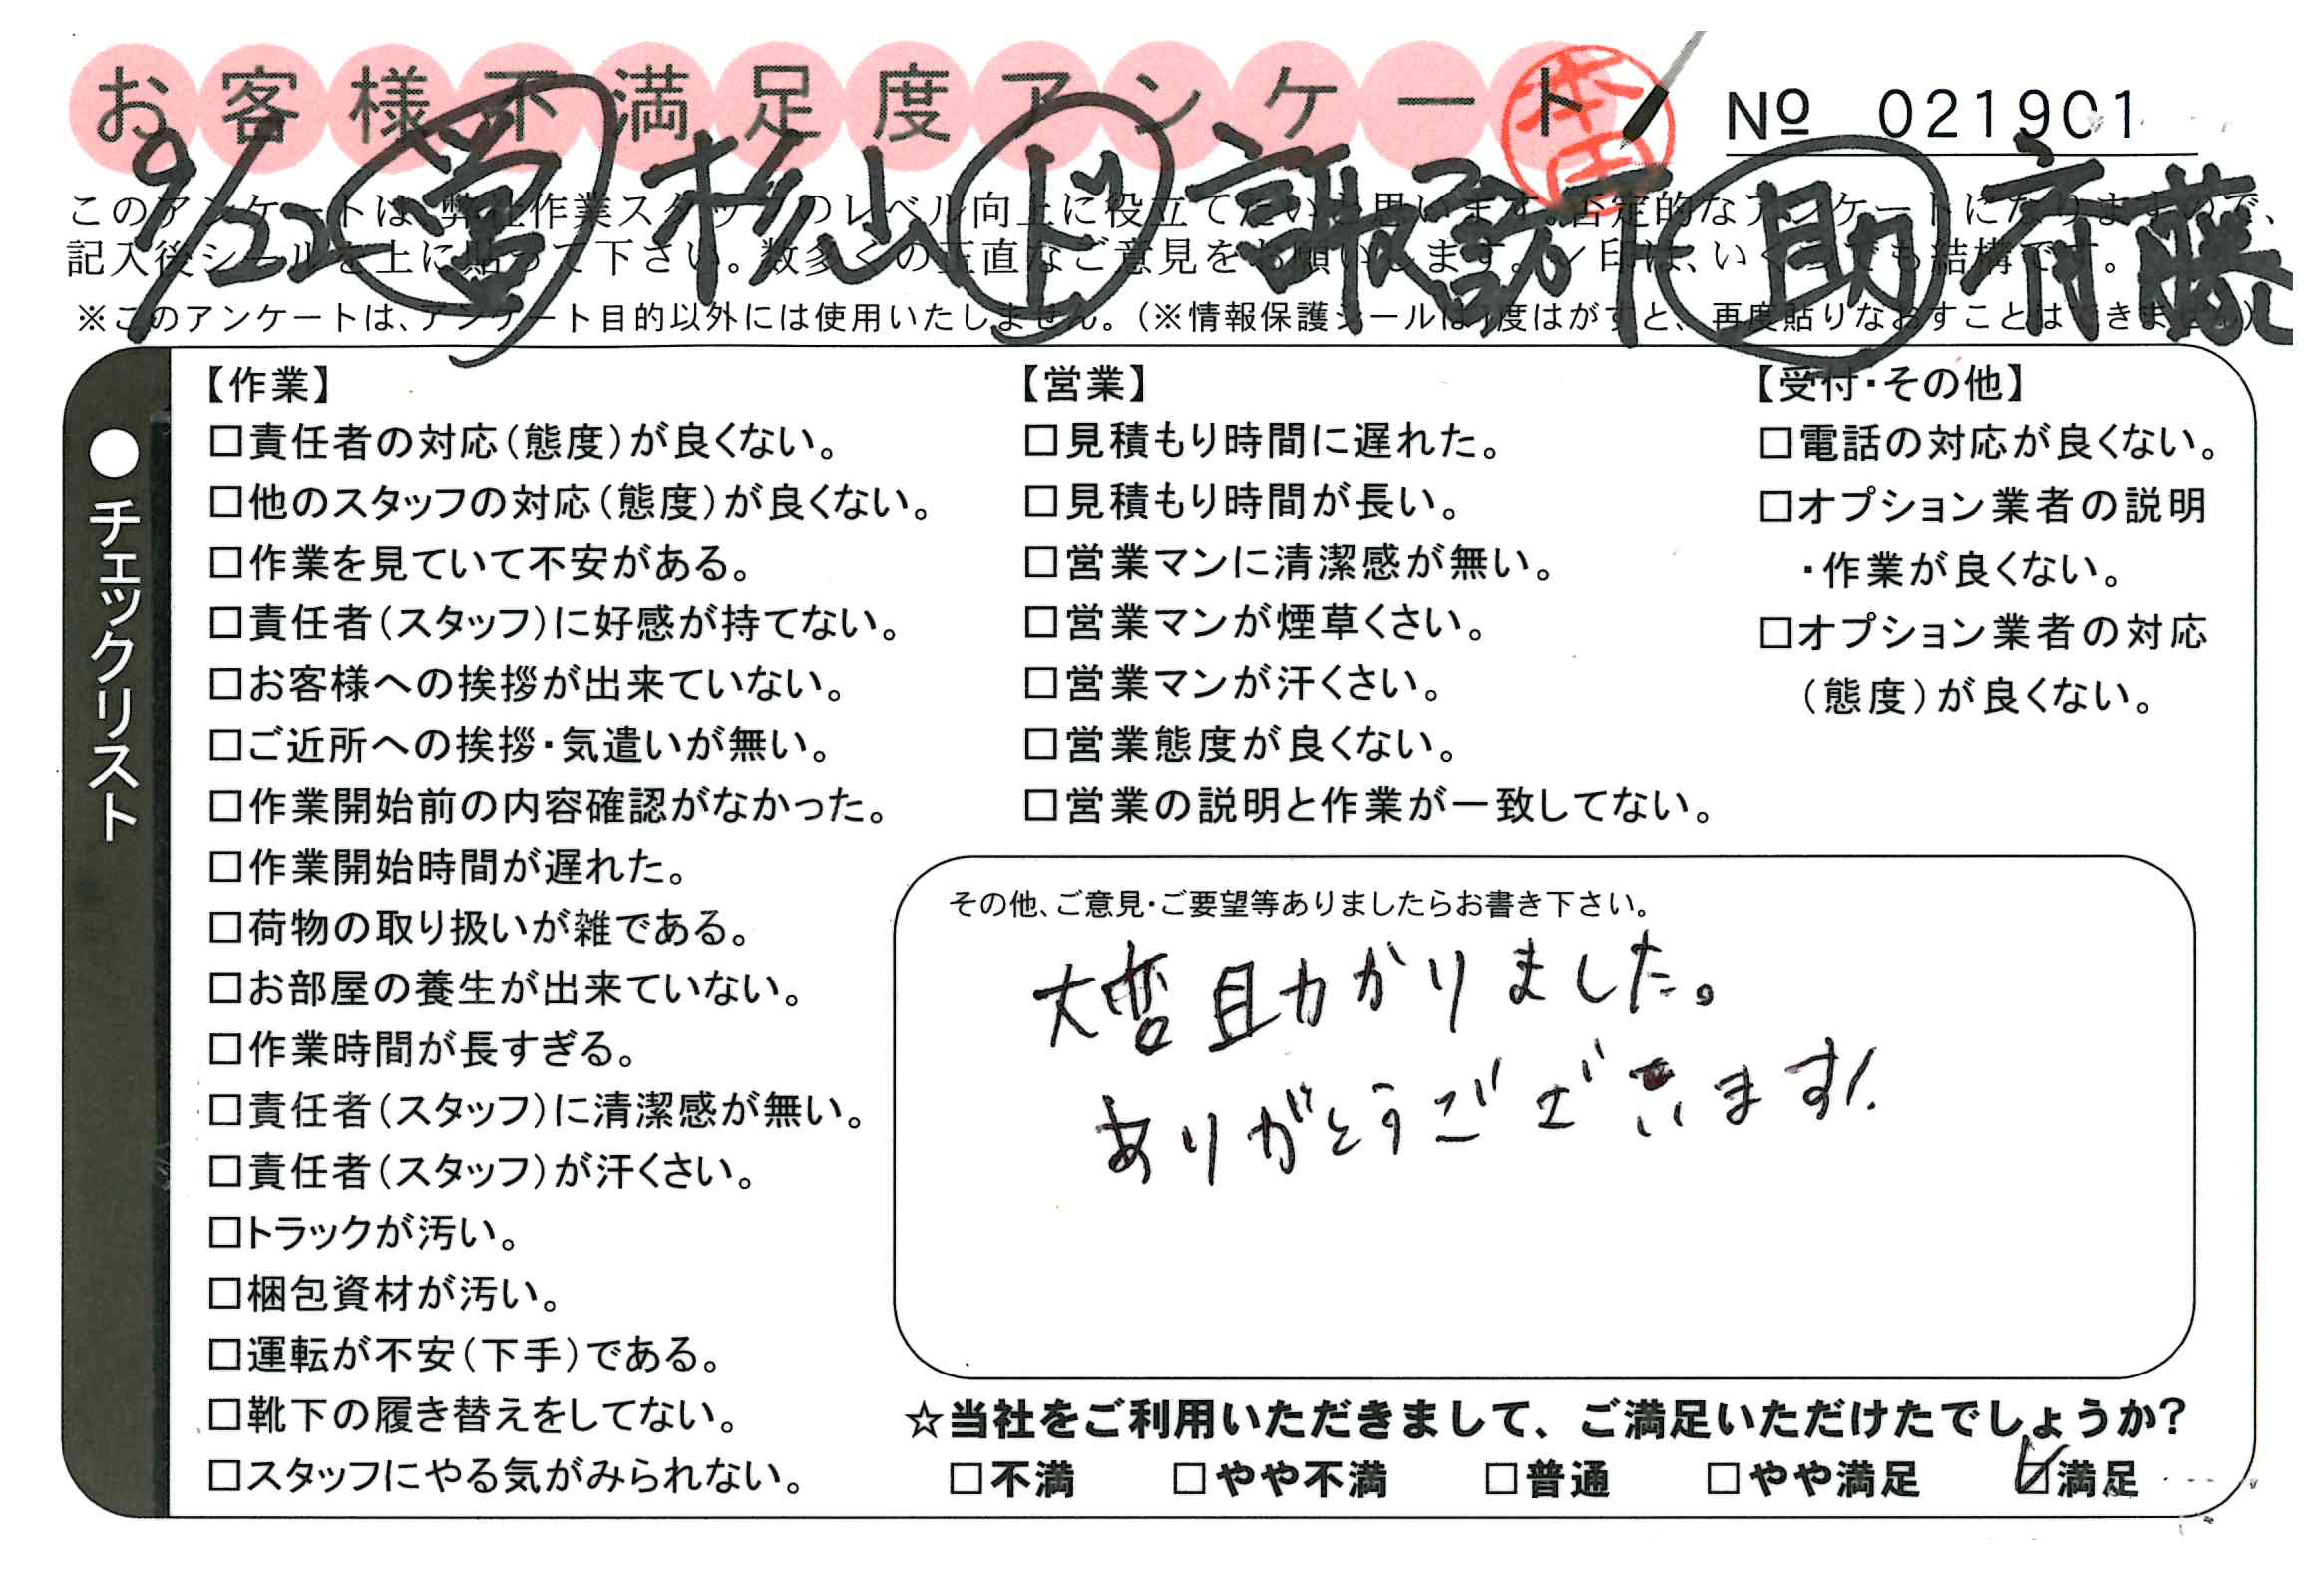 お客様不満足度アンケート
本田
№ 021901
9/22 営 杉山 ド 諏訪 助 斉藤
このアンケートは、弊社作業スタッフのレベル向上に役立てたいと思います。否定的なアンケートになりますので、
記入後シールを上に貼って下さい。数多くの正直なご意見をお願いします。／印は、いくつでも結構です。
※このアンケートは、アンケート目的以外には使用いたしません。（※情報保護シールは1度はがすと、再度貼りなおすことはできません。）
●チェックリスト
【作業】
□責任者の対応（態度）が良くない。
□他のスタッフの対応（態度）が良くない。
□作業を見ていて不安がある。
□責任者（スタッフ）に好感が持てない。
□お客様への挨拶が出来ていない。
□ご近所への挨拶・気遣いが無い。
□作業開始前の内容確認がなかった。
□作業開始時間が遅れた。
□荷物の取り扱いが雑である。
□お部屋の養生が出来ていない。
□作業時間が長すぎる。
□責任者（スタッフ）に清潔感が無い。
□責任者（スタッフ）が汗くさい。
□トラックが汚い。
□梱包資材が汚い。
□運転が不安（下手）である。
□靴下の履き替えをしてない。
□スタッフにやる気がみられない。
【営業】
□見積もり時間に遅れた。
□見積もり時間が長い。
□営業マンに清潔感が無い。
□営業マンが煙草くさい。
□営業マンが汗くさい。
□営業態度が良くない。
□営業の説明と作業が一致してない。
【受付・その他】
□電話の対応が良くない。
□オプション業者の説明
・作業が良くない。
□オプション業者の対応
（態度）が良くない。
その他、ご意見・ご要望等ありましたらお書き下さい。
大変助かりました。
ありがとうございます!
☆当社をご利用いただきまして、ご満足いただけたでしょうか?
□不満 □やや不満 □普通 □やや満足 ☑満足